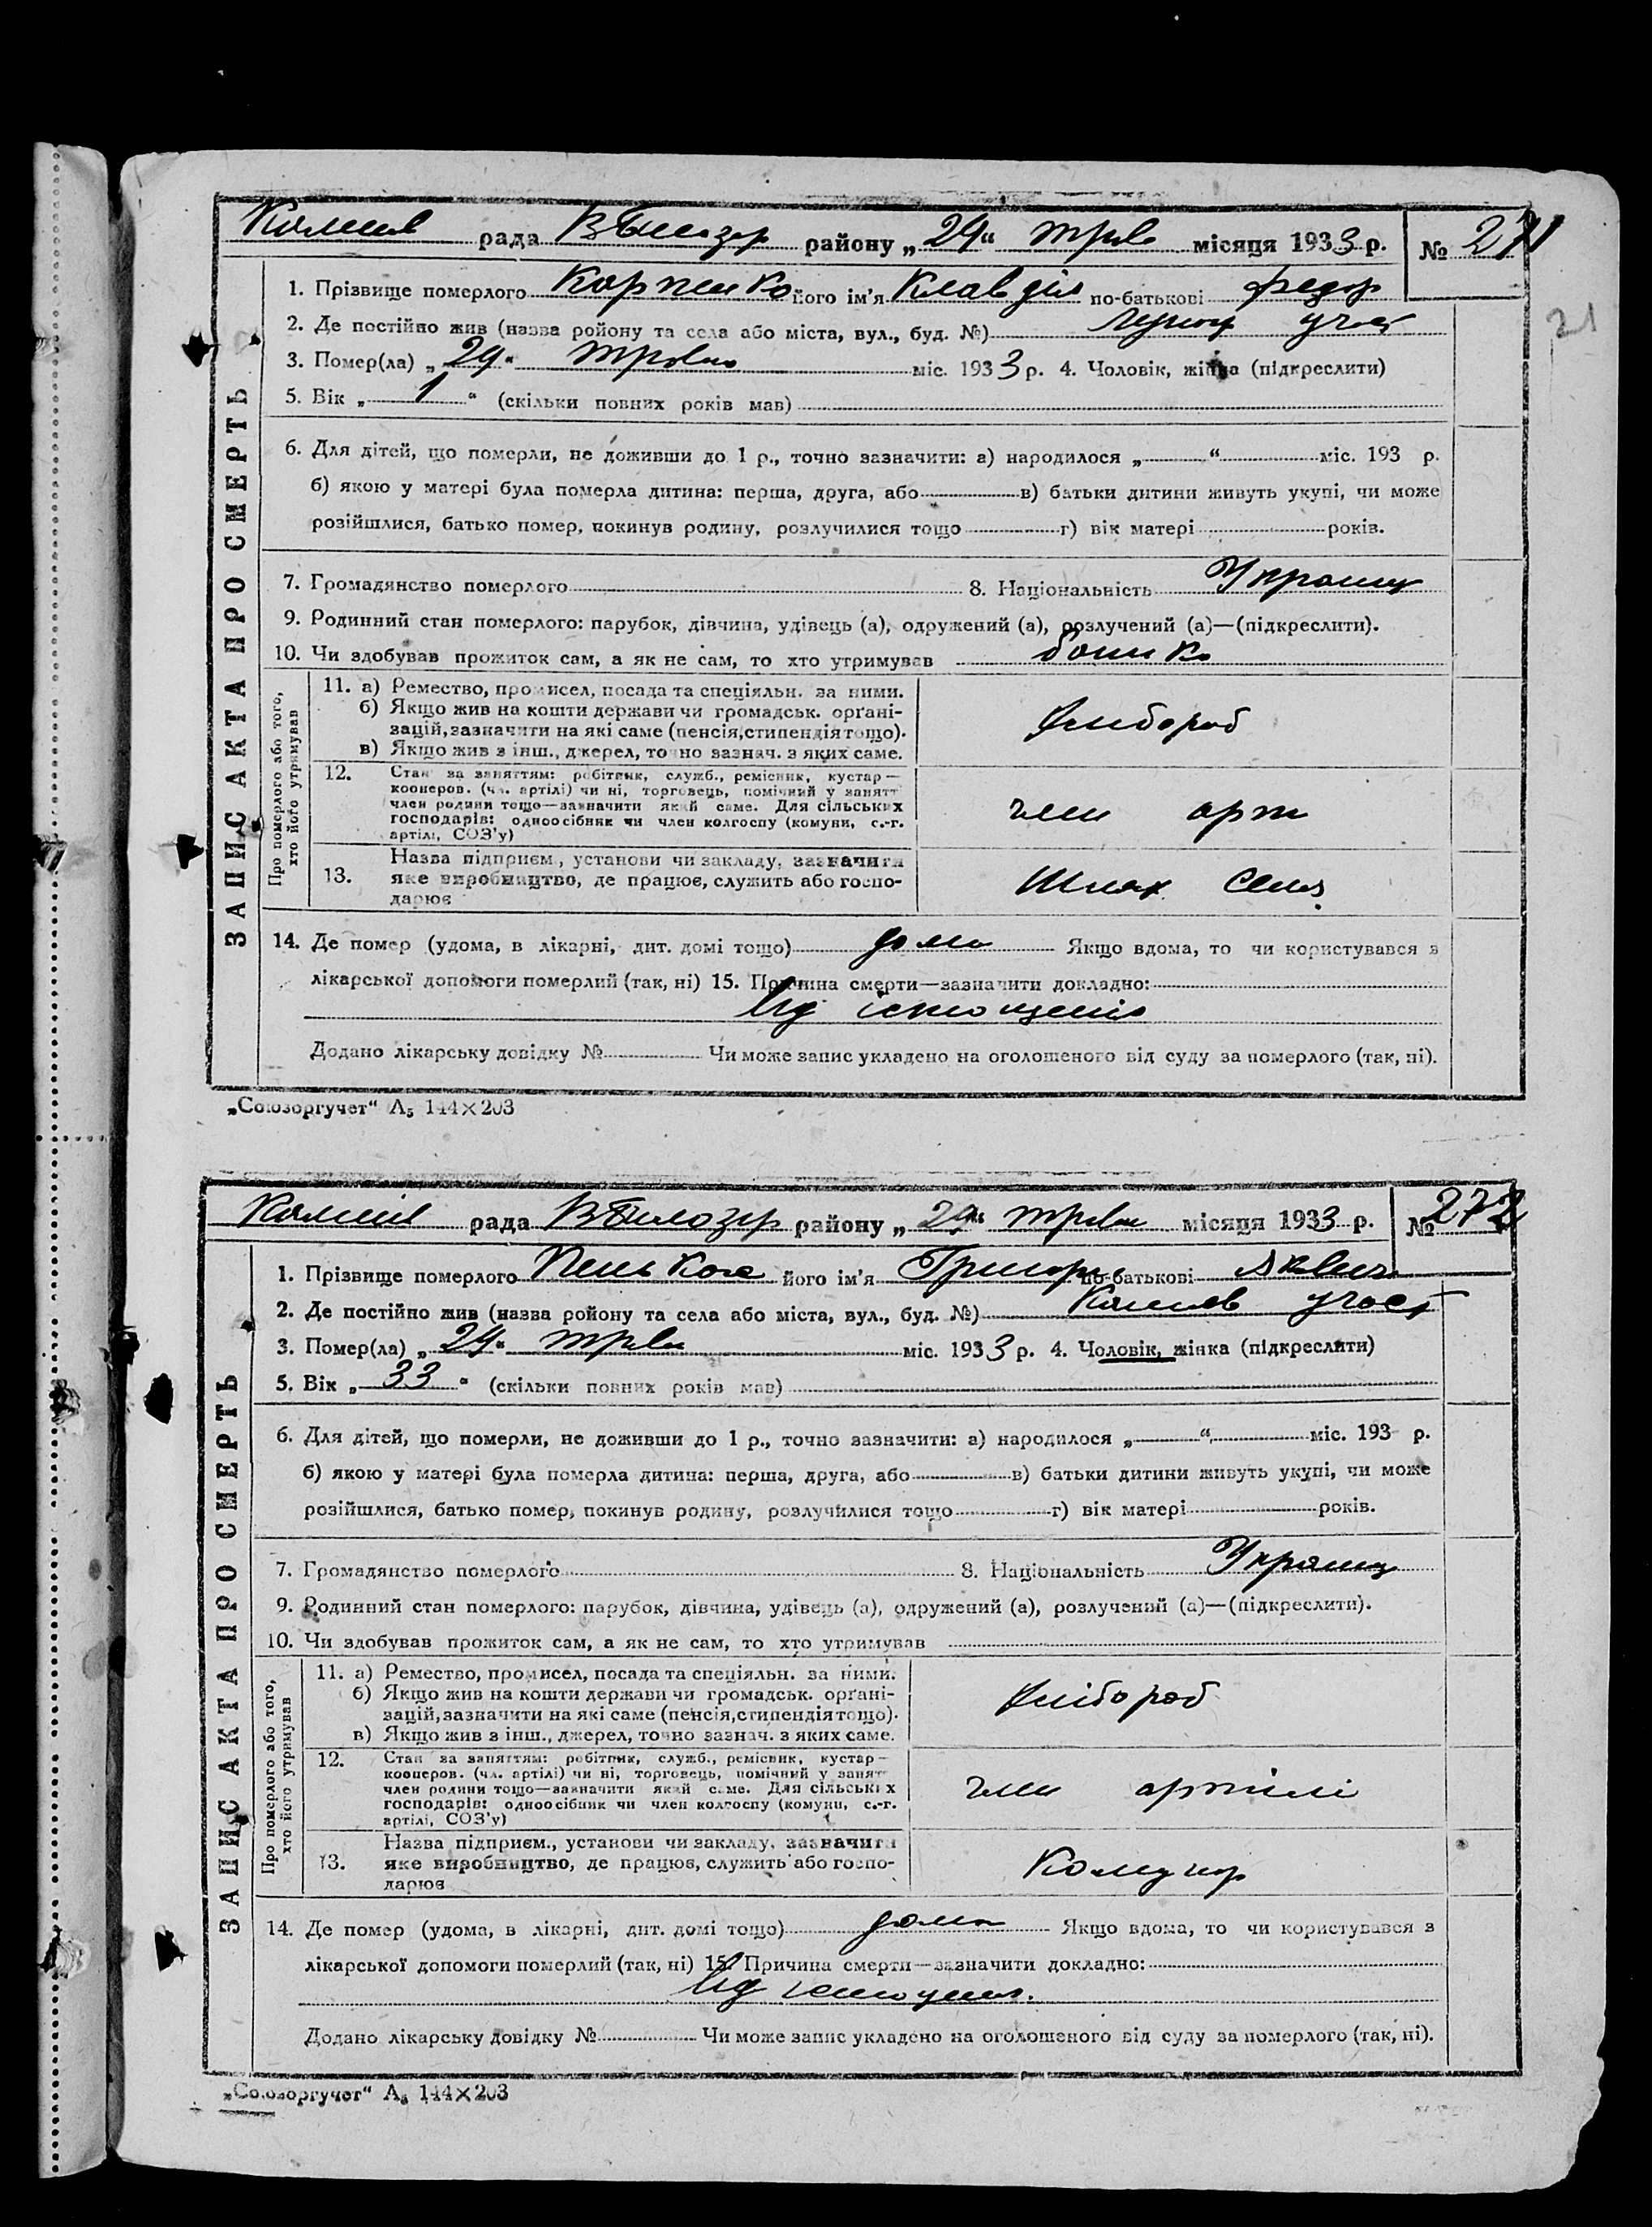 рада В.Білозер району „29“ трав місяця 1933 р. № 271
1. Прізвище померлого його ім'я Клавдія по-батькові Федор
2. Де постійно жив (назва ройону та села або міста, вул., буд. №) участ
3. Помер(ла) „29“ травня міс. 1933 р. 4. Чоловік, жінка (підкреслити)
5. Вік „1“ (скільки повних років мав)
6. Для дітей, що померли, не доживши до 1 р., точно зазначити: а) народилося „ “ міс. 193 р.
б) якою у матері була померла дитина: перша, друга, або в) батьки дитини живуть укупі, чи може
розійшлися, батько помер, покинув родину, розлучилися тощо г) вік матері років.
7. Громадянство померлого 8. Національність Украинц
9. Родинний стан померлого: парубок, дівчина, удівець (а), одружений (а), розлучений (а)—(підкреслити).
10. Чи здобував прожиток сам, а як не сам, то хто утримував батько
ЗАПИС АКТА ПРО СМЕРТЬ
Про померлого або того,
хто його утримував
11. а) Ремество, промисел, посада та спеціяльн. за ними.
б) Якщо жив на кошти держави чи громадськ. органі-
зацій, зазначити на які саме (пенсія, стипендія тощо).
в) Якщо жив з інш., джерел, точно зазнач. з яких саме.
хлибороб
12. Стан за заняттям: робітник, служб., ремісник, кустар—
кооперов. (чл. артілі) чи ні, торговець, помічний у занятт
член родини тощо—зазначити який саме. Для сільських
господарів: одноосібник чи член колгоспу (комуни, с.-г.
артілі, СОЗ'у)
член арт
13. Назва підприєм., установи чи закладу, зазначити
яке виробництво, де працює, служить або госпо-
дарює
Шлях Селя
14. Де помер (удома, в лікарні, дит. домі тощо) дома Якщо вдома, то чи користувався з
лікарської допомоги померлий (так, ні) 15. Причина смерти—зазначити докладно:
Від істощенія
Додано лікарську довідку № Чи може запис укладено на оголошеного від суду за померлого (так, ні).
„Союзоргучет“ А₅ 144×203
21
рада В.Білозер району „29“ трав місяця 1933 р. № 272
1. Прізвище померлого його ім'я Григорь по-батькові
2. Де постійно жив (назва ройону та села або міста, вул., буд. №) участ
3. Помер(ла) „29“ трав міс. 1933 р. 4. Чоловік, жінка (підкреслити)
5. Вік „33“ (скільки повних років мав)
6. Для дітей, що померли, не доживши до 1 р., точно зазначити: а) народилося „ “ міс. 193 р.
б) якою у матері була померла дитина: перша, друга, або в) батьки дитини живуть укупі, чи може
розійшлися, батько помер, покинув родину, розлучилися тощо г) вік матері років.
7. Громадянство померлого 8. Національність Украинц
9. Родинний стан померлого: парубок, дівчина, удівець (а), одружений (а), розлучений (а)—(підкреслити).
10. Чи здобував прожиток сам, а як не сам, то хто утримував
ЗАПИС АКТА ПРО СМЕРТЬ
Про померлого або того,
хто його утримував
11. а) Ремество, промисел, посада та спеціяльн. за ними.
б) Якщо жив на кошти держави чи громадськ. органі-
зацій, зазначити на які саме (пенсія, стипендія тощо).
в) Якщо жив з інш., джерел, точно зазнач. з яких саме.
хлібороб
12. Стан за заняттям: робітник, служб., ремісник, кустар—
кооперов. (чл. артілі) чи ні, торговець, помічний у занятт
член родини тощо—зазначити який саме. Для сільських
господарів: одноосібник чи член колгоспу (комуни, с.-г.
артілі, СОЗ'у)
член артілі
13. Назва підприєм., установи чи закладу, зазначити
яке виробництво, де працює, служить або госпо-
дарює
Комунар
14. Де помер (удома, в лікарні, дит. домі тощо) дома Якщо вдома, то чи користувався з
лікарської допомоги померлий (так, ні) 15. Причина смерти—зазначити докладно:
Від істощения.
Додано лікарську довідку № Чи може запис укладено на оголошеного від суду за померлого (так, ні).
„Союзоргучет“ А₅ 144×203